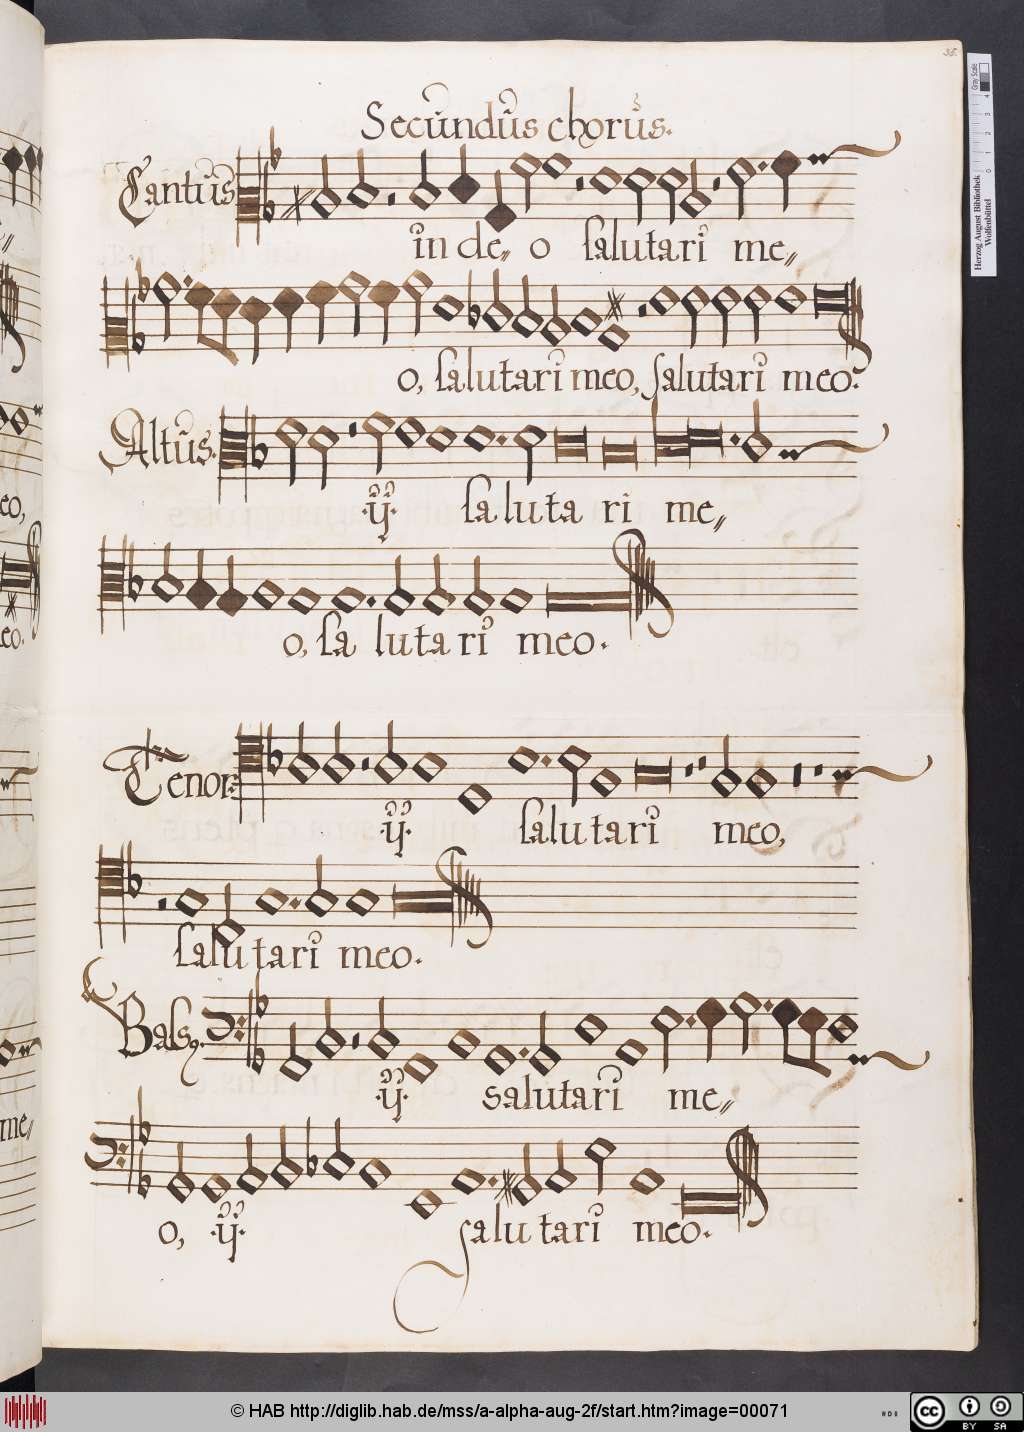 35.
Secundus chorus.
Cantus
in de〃 o salutari me〃
o, salutari meo, salutari meo.
Altus.
.ij. saluta ri me〃
o, sa lutari meo.
Tenor.
.ij. salutari meo,
salutari meo.
Bass9.
.ij. salutari me〃
o, .ij. salutari meo.
eo,
eo.
me〃
Gray Scale
0 1 2 3 4
Herzog August Bibliothek
Wolfenbüttel
© HAB http://diglib.hab.de/mss/a-alpha-aug-2f/start.htm?image=00071
cc BY SA